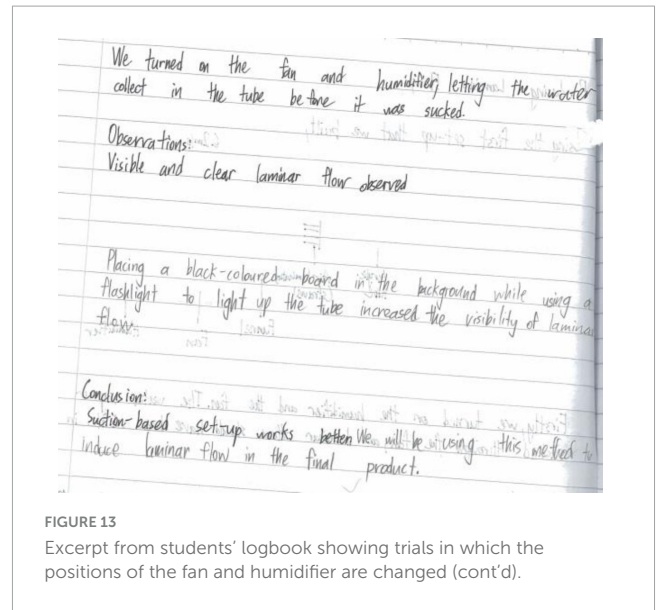 We turned on the fan and humidifier, letting the water
collect in the tube before it was sucked.
Observations:
Visible and clear laminar flow observed
Placing a black-coloured board in the background while using a
flashlight to light up the tube increased the visibility of laminar
flow
Conclusion:
Suction-based set-up works better. We will be using this method to
induce laminar flow in the final product.
FIGURE 13
Excerpt from students' logbook showing trials in which the
positions of the fan and humidifier are changed (cont'd).